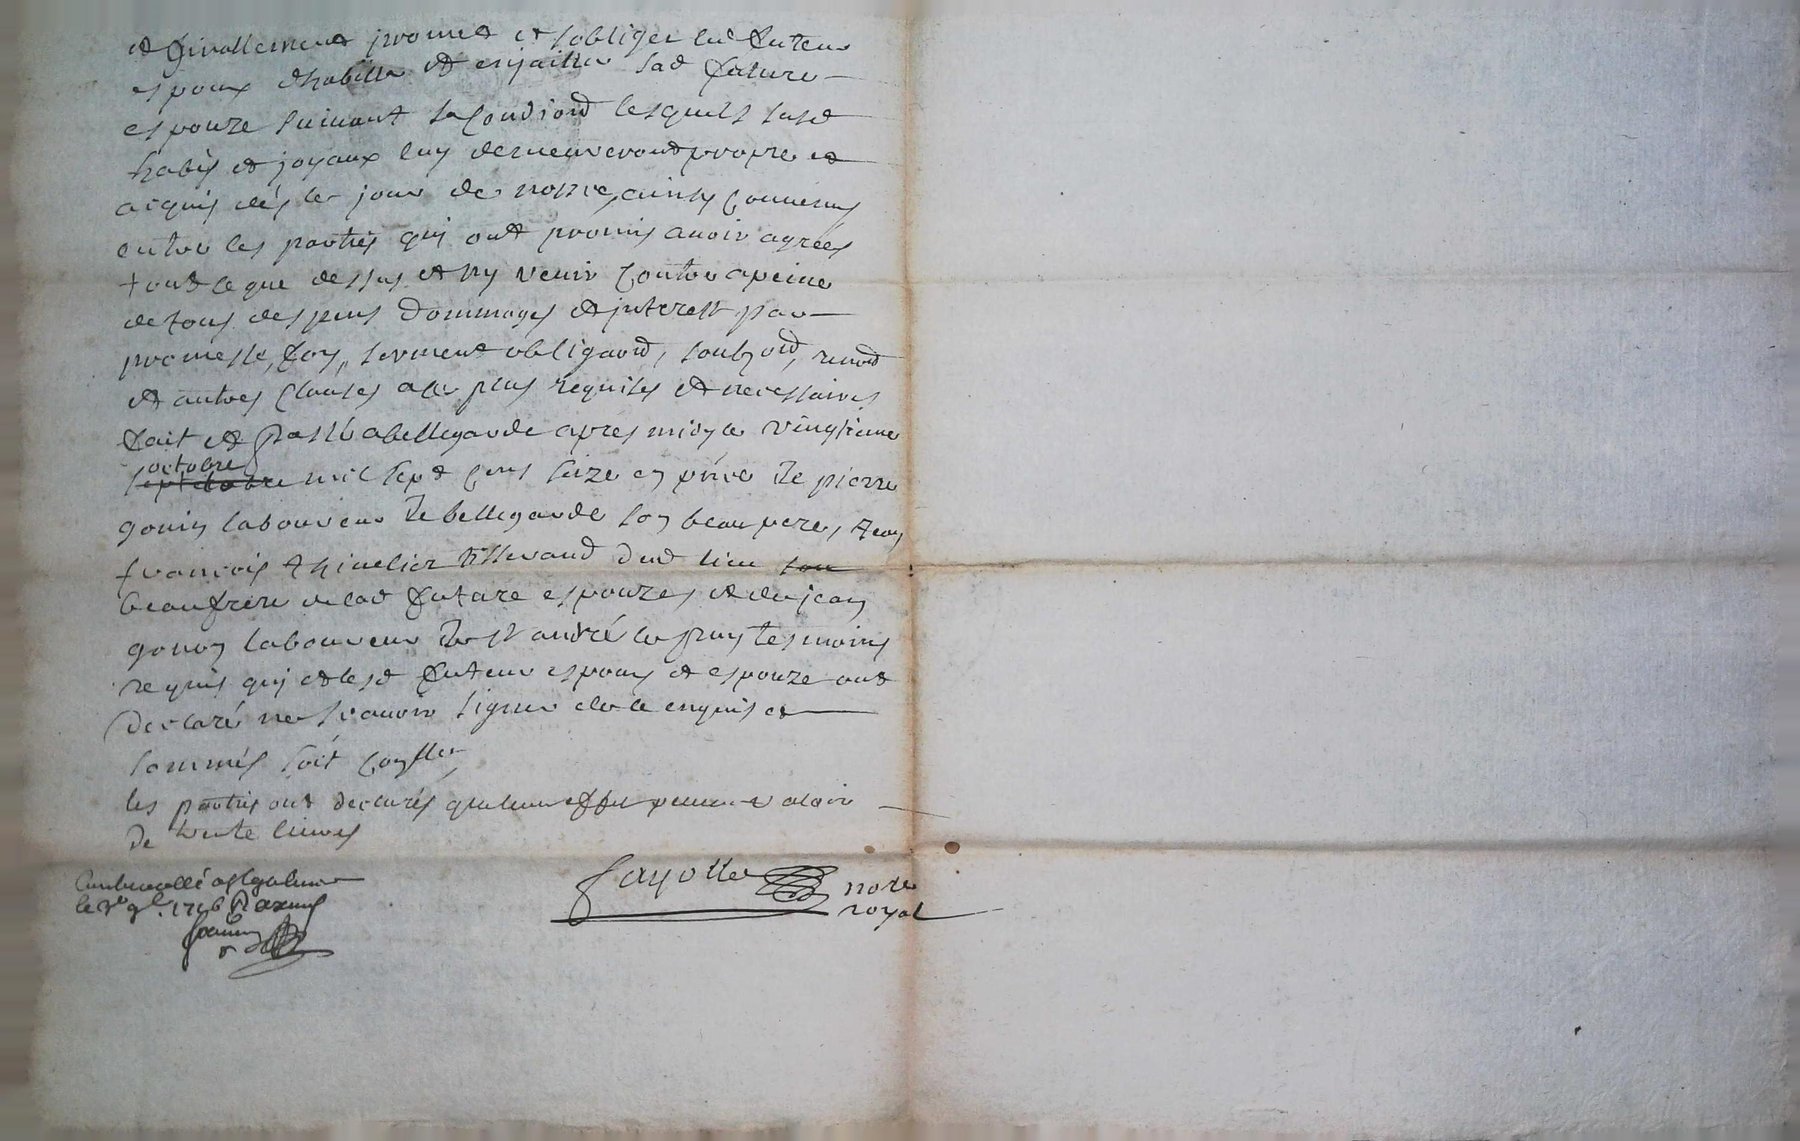 et finallement promet et s'obliger led futeur
espoux d'habiller et enjailler sad future
espouze suivant sa condiond lesquels susd
habis et joyaux luy demeureront propre et
acquis dés le jour de nopce, ainsy convenus
entre les parties qui ont promis avoir agreés
tout ce que dessus et ny venir contre a peine
de tous despens dommages et interest par
promesse, foy, serment obligaond, soubzond, renond
et autres clauses a ce plus requises et necessaires
fait et passé a bellegarde apres midy le vingtieme
octobre
septembre mil sept cens seize en pnce de pierre
gonin laboureur de bellegarde son beau pere, de
françois thivelier tisserand dud lieu son
beaufrere de lad future espouze, et de jean
gonon laboureur de st andré le puy tesmoins
requis qui et lesd futeur espoux et espouze ont
declaré ne scavoir signer de ce enquis et
sommés soit conllé
les parties ont declarés que leur effet peuvent valoir
de trente livres
Controllé a st galmier
le 1716
fayolle notre
royal